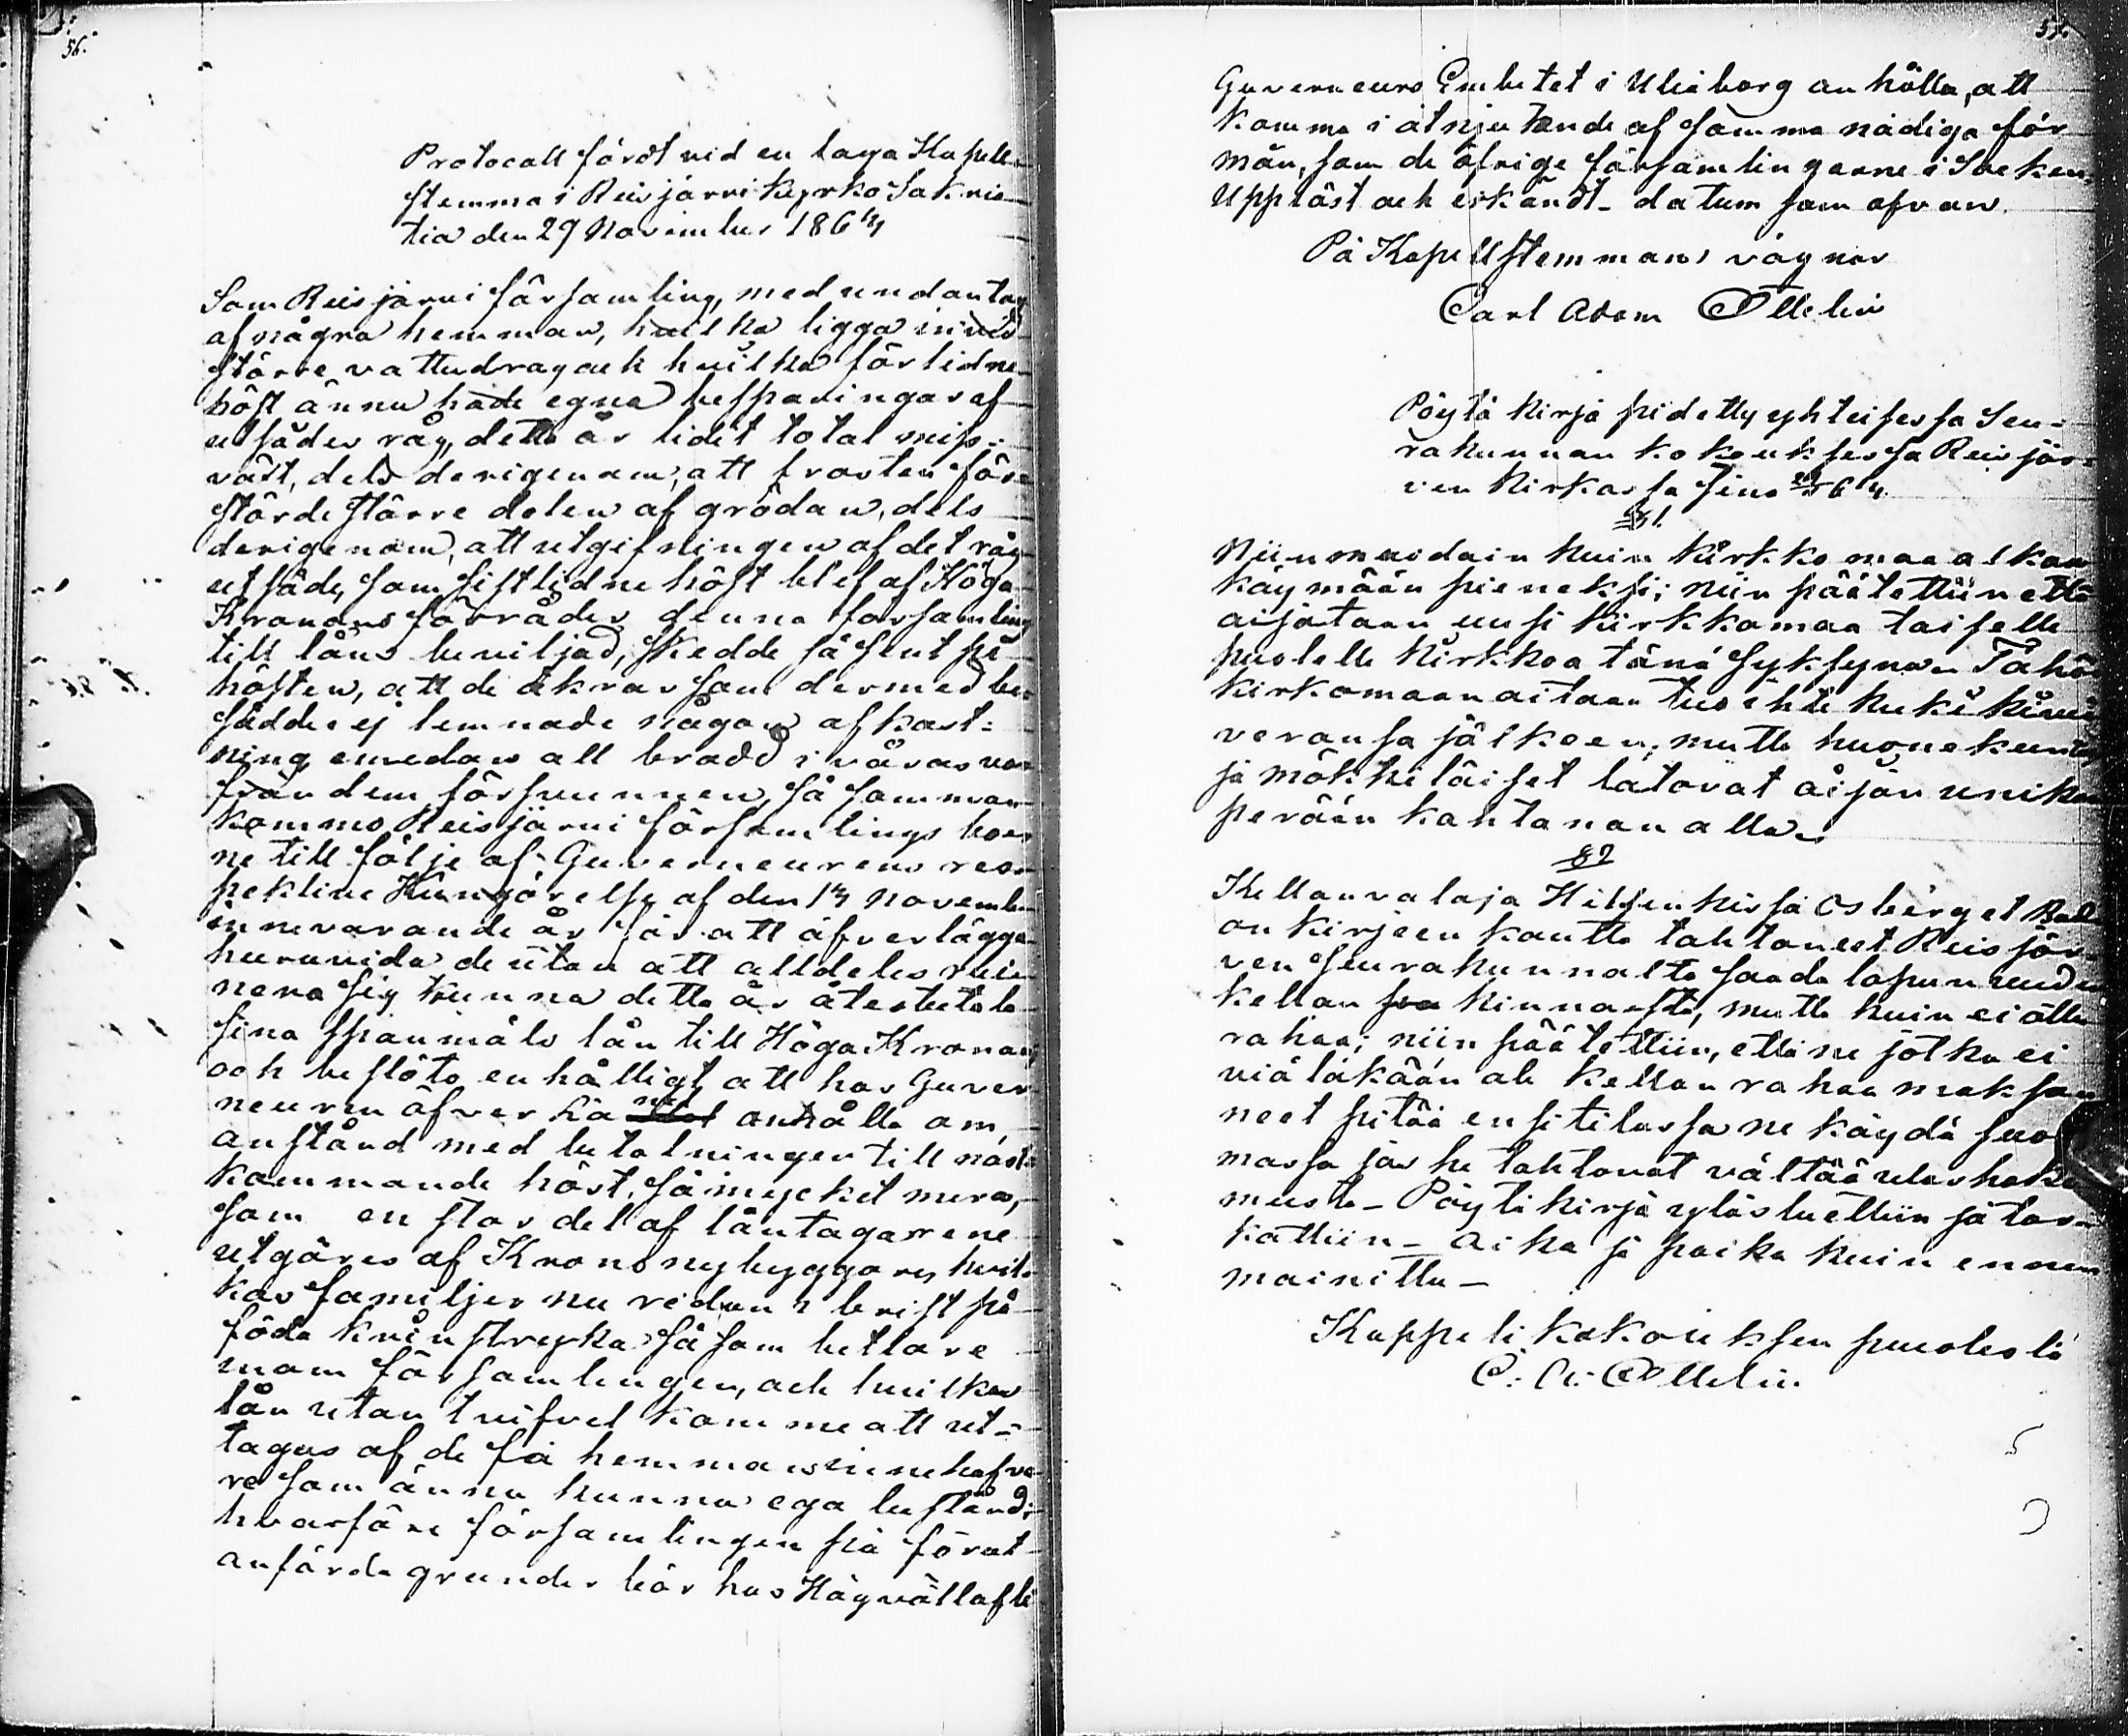 56.
Protocoll fördt vid en laga Kapell-
stemma i Reisjärvi kyrko Sakris-
tia den 29 November 1864
Som Reisjärvi församling, med undantag
af några hemman, hvilka ligga invid
större vattudrag och hvilka förlidne
höst ännu hade egna besparingar af
utsädes råg, detta år lidit total miss-
växt, dels derigenom, att frosten för-
störde större delen af grödan, dels
derigenom, att utgifningen af det råg
utsäde, som sistlidne höst blef af Höga
Kronans förråder denna församling
till låns beviljad, skedde så sent på
hösten, att de åkrar som dermed be-
sådde ej lemnade någon afkast-
ning emedan all brodd i våras var
från dem försvunnen, så samman-
kommo Reisjärvi församlings boer
ne till följe af Guverneurens res-
pektive Kungörelse af den 14 november
innevarande år för att öfverlägga
huruvida de utan att alldeles rui-
nera sig kunna detta år återbetala
sina spanmåls lån till Höga Kronan
och beslöto enhälligt att hos Guver-
neuren öfver Lä anhålla om
anstånd med betalningen till näst-
kommande höst, så mycket mera,
som en stor del af låntagarene
utgöres af Krononybyggare, hvil-
kas familjer nu redan i brist på
föda kringstryka såsom betlare
inom församlingen, och hvilkas
lån utan tvifvel komme att ut-
tagas af de få hemmansinnehafva-
re som ännu kunna ega bestånd;
hvarföre församlingen på förut
anförde grunder bör hos Högvällofli
Guverneurs Embetet i Uleåborg anhålla, att
komma i åtnjutande af samma nådiga för-
mån, som de öfrige församlingarne i Socken.
Uppläst och erkändt- datum som ofvan.
På Kapellstemmans vägnar
Carl Adam Ollelin
Pöytä kirja pidetty yhteisessä Seu-
rakunnan kokouksessa Reisjär-
ven Kirkossa Sinä
§ 1.
Niin muodoin kuin kirkko maa alkaa
käymään pieneksi; niin päätettiin että
aijotaan uusi kirkkomaa toiselle
puolelle kirkkoa tänä Syksynä. Tähän
kirkomaan aitaan tuo ihte kuki kiviä
veronsa jälkeen; mutta huonekunta
ja mökkiläiset latovat aijan
perään kahtanan alla
§ 2
Kellonvalaja Osberg et Bade
on kirjeen kautta tahtoneet Reisjär-
ven seurakunnalta saada lopun uuden
kellon hinnasta, mutta kuin ei ollu
rahaa; niin päätettiin, että ne jotka ei
viäläkään ole kellon rahaa maksa-
neet pitää ensi tilassa ne käydä
massa jos he tahtovat välttää uloshake
musta- Pöytä kirja ylösluettiin ja tar-
kattiin- aika ja paika kuin ennen
mainittu-
Kappeli kokouksen puolesta
C: A: Ollelin